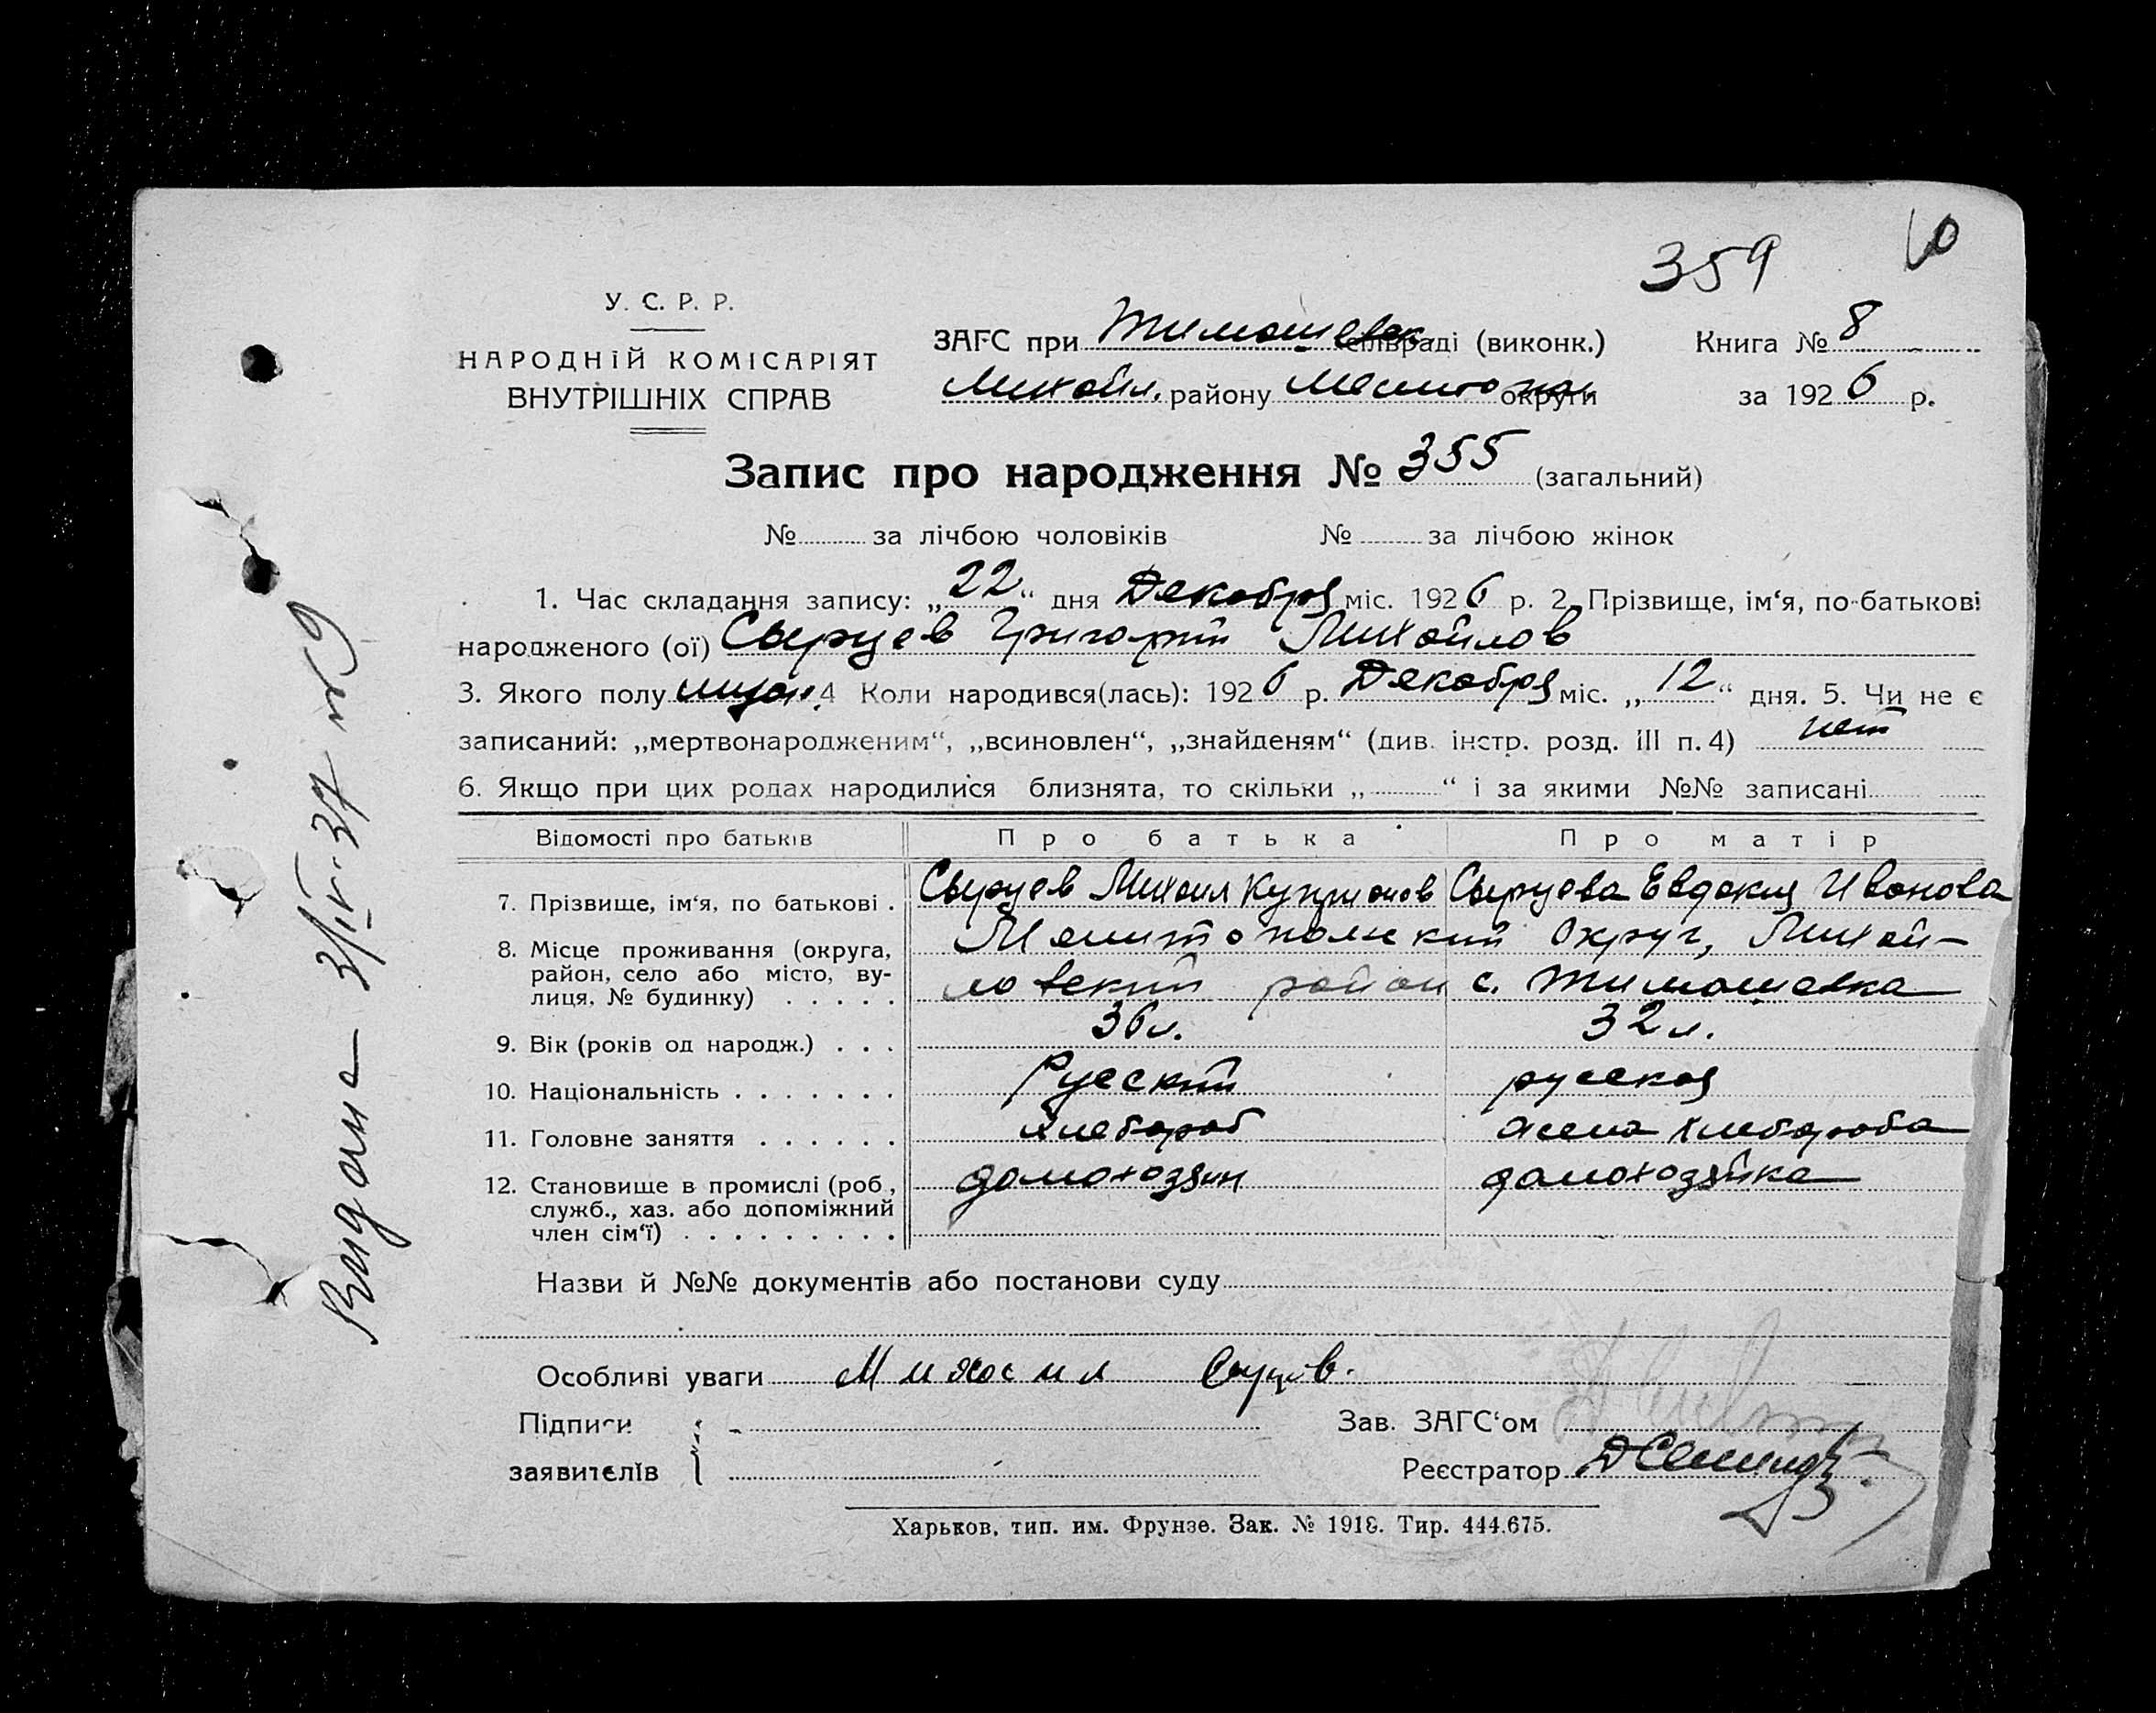 359 10
У. С. Р. Р.
НАРОДНІЙ КОМІСАРІЯТ
ВНУТРІШНІХ СПРАВ
ЗАГС при Тимошевск. сільраді (виконк.) Книга № 8
Михайл. району Мелитопол. округи за 1926 р.
Запис про народження № 355 (загальний)
№ за лічбою чоловіків № за лічбою жінок
1. Час складання запису: „22“ дня Декабря міс. 1926 р. 2. Прізвище, ім‘я, по-батькові
народженого (ої) Сырцев Григорий Михайлов
3. Якого полу мужс. 4 Коли народився(лась): 1926 р. Декабря міс. „12“ дня. 5. Чи не є
записаний: „мертвонародженим“, „всиновлен“, „знайденям“ (див. інстр. розд. III п. 4) нет
6. Якщо при цих родах народилися близнята, то скільки „ “ і за якими №№ записані
Відомості про батьків Про батька Про матір
7. Прізвище, ім‘я, по батькові . Сырцев Михаил Куприянов Сырцева Евдокия Иванова
8. Місце проживання (округа, Мелитопольский Округ, Михай-
район, село або місто, ву-
лиця, № будинку) . . . . . ловский район с. Тимошевка
9. Вік (років од народж.) . . . 36 л. 32 л.
10. Національність . . . . . . . Русский русская
11. Головне заняття . . . . . . хлебороб жена хлебороба
12. Становище в промислі (роб., домохозяин домохозяйка
служб., хаз. або допоміжний
член сім‘ї) . . . . . . . . .
Назви й №№ документів або постанови суду
Особливі уваги Михаил Сырцев.
Підписи
заявителів
Зав. ЗАГС‘ом
Реєстратор
Харьков, тип. им. Фрунзе. Зак. № 1918. Тир. 444.675.
Видана 3/IV-37 №9